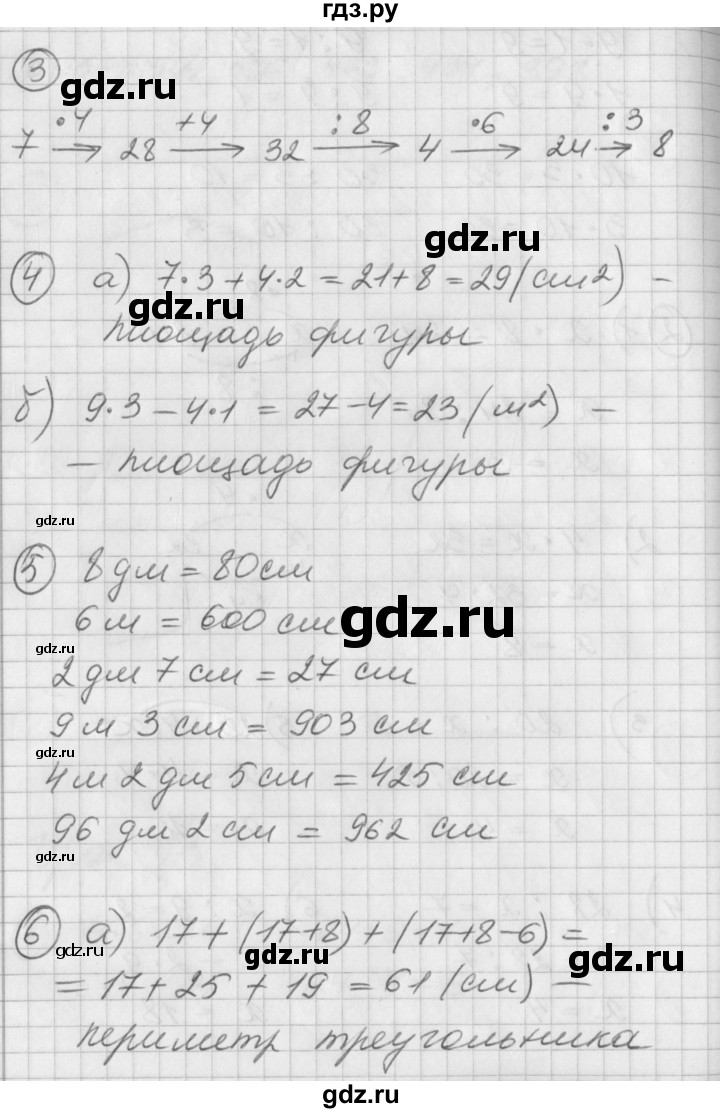 гдз.ру
3
gdz.ru
7 —·4→ 28 —+4→ 32 —:8→ 4 —·6→ 24 —:3→ 8
gdz.ru
4 а) 7·3+4·2=21+8=29(см²) –
gdz.ru
площадь фигуры
б) 9·3–4·1=27–4=23(м²) –
– площадь фигуры
gdz.ru
5 8 дм = 80 см
6 м = 600 см
gdz.ru
gdz.ru
2 дм 7 см = 27 см
9 м 3 см = 903 см
gdz.ru
4 м 2 дм 5 см = 425 см
96 дм 2 см = 962 см
gdz.ru
6 а) 17+(17+8)+(17+8–6)=
gdz.ru
gdz.ru
gdz.ru
=17+25+19=61(см) –
периметр треугольника
gdz.ru
gdz.ru